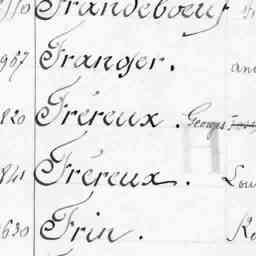 Frandebœuf
907 Franger. an
820 Fréreux. Georges
841 Fréreux. Lou
630 Frin. Ro